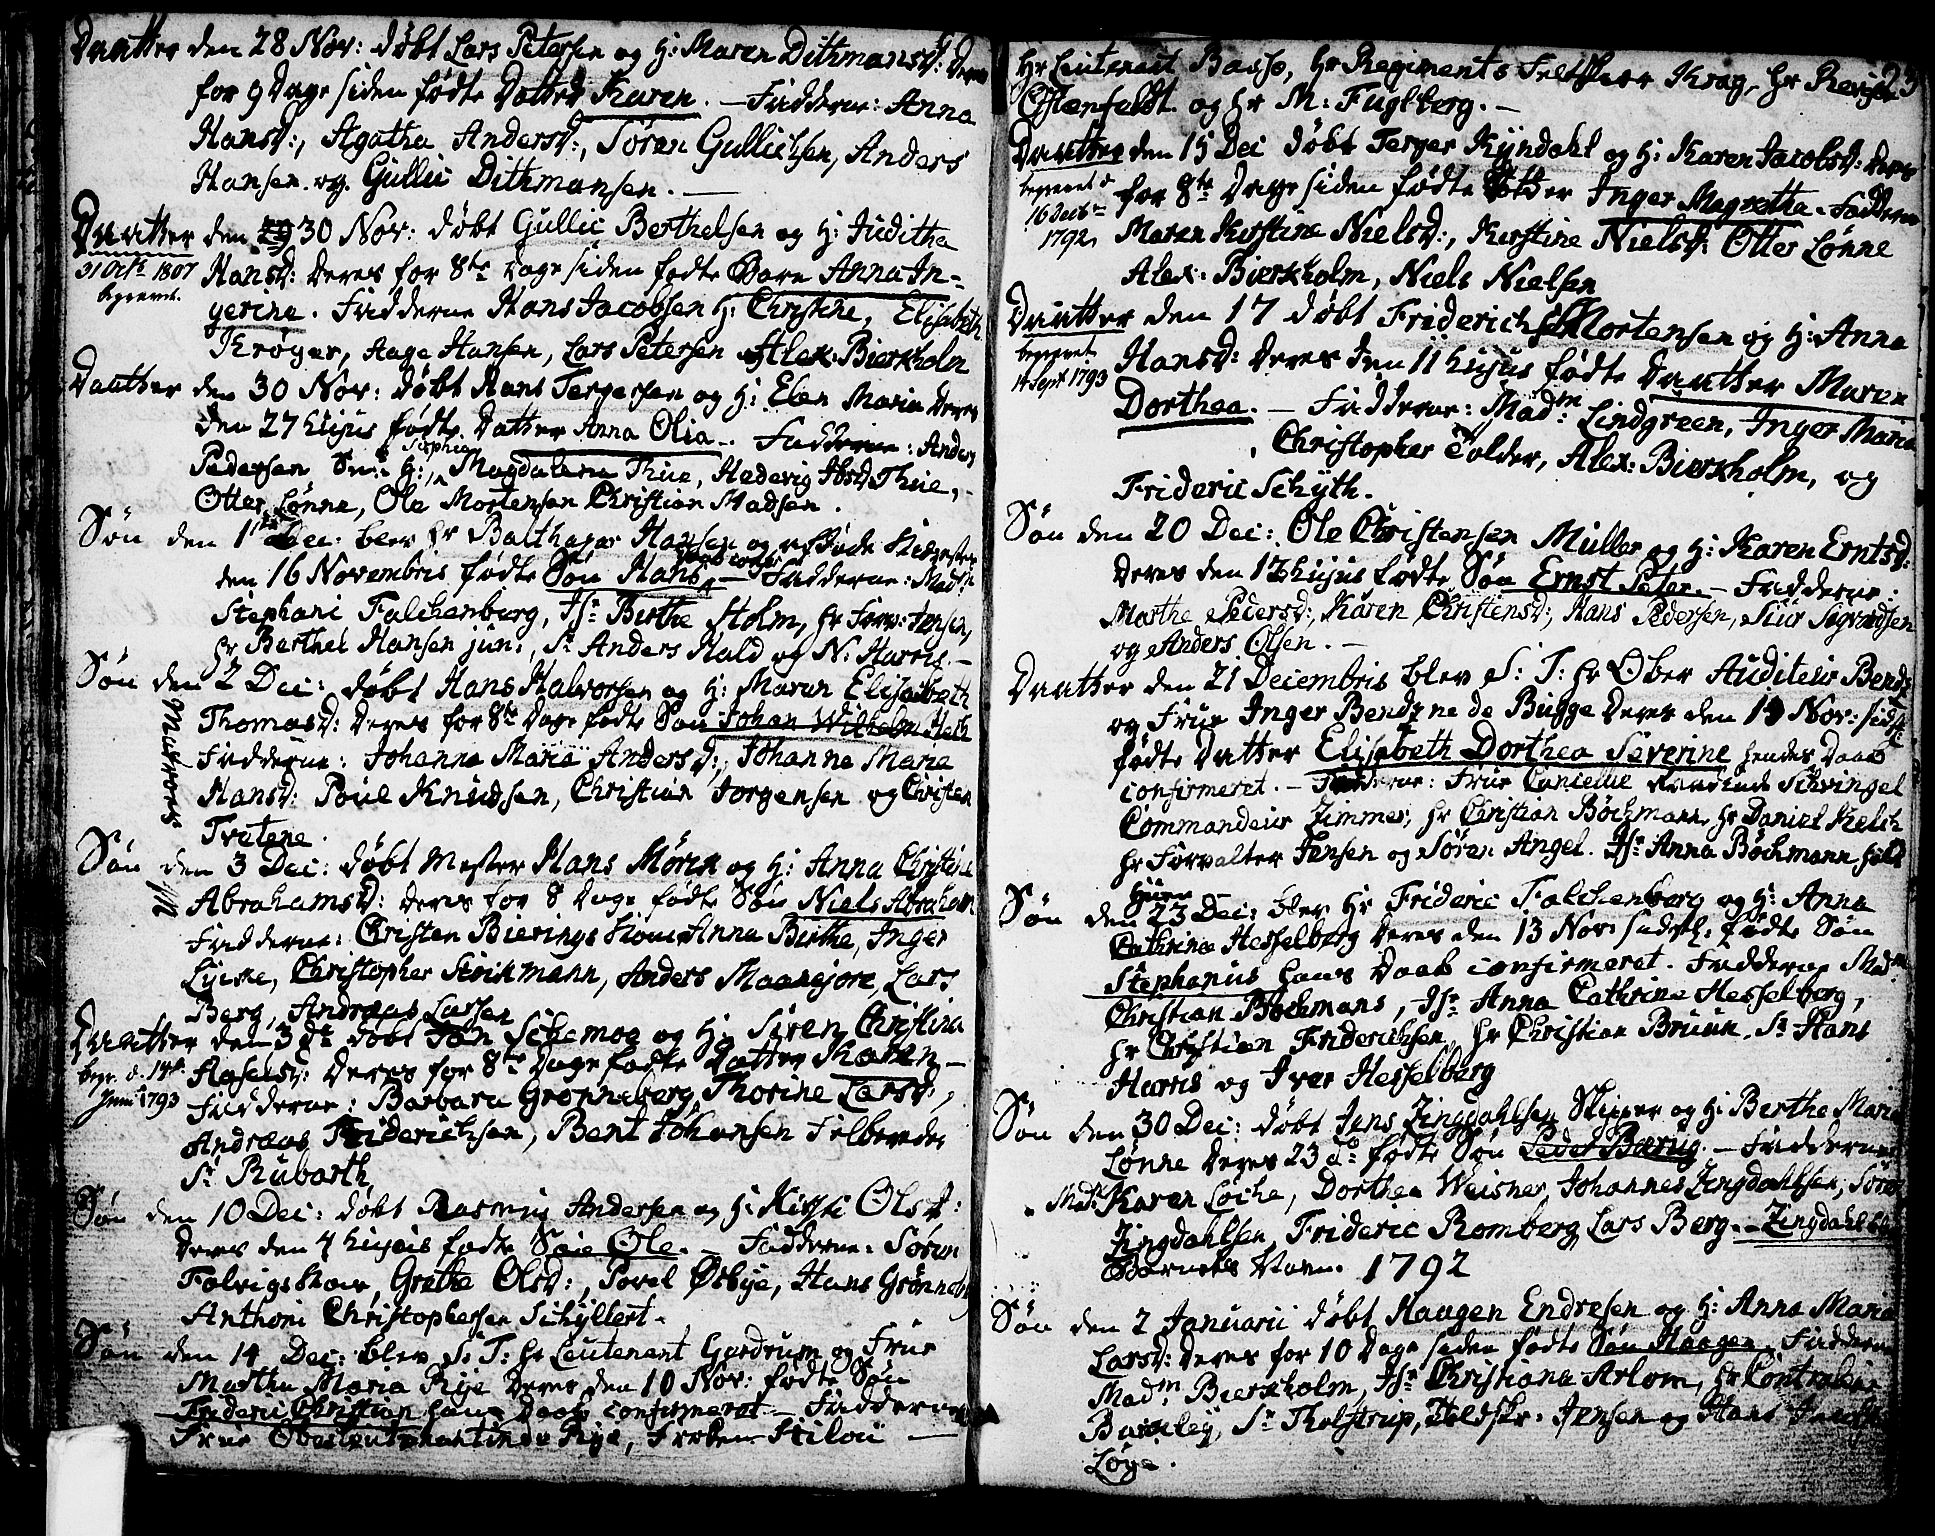 Daatter den 28 Nov: døbt Lars Petersen og H: Maren Dithmansd: Deres
for 9 Dage siden fødte Datter Karen. — Fadderne: Anna
Hansd:, Agatha Andersd:, Søren Gullichsen, Anders
Hansen og Gullic Dithmansen. —
Daatter den 30 Nov: døbt Gullic Berthelsen og H: Juditha
31 Octb 1807
begravet.
Hansd: Deres for 8te Dage siden fødte Barn Anna In-
gerine. Fadderne Hans Jacobsen H: Christine, Elisabeth
Krøyer, Aage Hansen, Lars Petersen Alex: Bierkholm
Daatter den 30 Nov: døbt Hans Tergersen og H: Elen Maria Deres
den 27 hujus fødte Datter Anna Olia. Fadderne: Anders
Sophie
Pedersen H:, Magdalena Thue, Hedevig Thue,
Otter Lønne, Ole Mortensen Christian Madsen.
Søn den 1te Dec: blev Hr Balthazar Hansen og
den 16 Novembris fødte Søn Hans — Fadderne: Madm
Stephani Falchenborg, Jfr Birthe Holm, Hr Forv: Jensen,
Hr Berthel Hansen jun:, Sr Anders Hald og N: Harris. —
Søn den 2 Dec: døbt Hans Halvorsen og H: Maren Elisabeth
Thomasd: Deres for 8te Dage fødte Søn Johan Wilhelm
Matros
Fadderne: Johanna Maria Andersd:, Johanne Marie
Hansd: Poul Knudsen, Christian Jørgensen og Christen
Tvetene.
Søn den 3 Dec: døbt Mester Hans Mørck og H: Anna Christine
Abrahamsd: Deres for 8 Dage fødte Søn Niels Abraham
Fadderne: Christen Bierings Kone Anna Birthe, Inger
Lycke, Christopher Stockmann, Anders Maanejore, Lars
Berg, Andreas Lassen
Daatter den 3 dt døbt Jon Siljemoe og H: Siren Christina
begr. d. 14
Juni 1793
Deres for 8te Dage fødte Datter Karen —
Fadderne: Barbara Grønneberg, Thorine Larsd:,
Andreas Friderichsen, Bent Johansen
Sr Rubarth
Søn den 10 Dec: døbt Rasmus Andersen og H: Kirsti Olsd:
Deres den 4 hujus fødte Søn Ole. — Fadderne: Søren
Falvigs Kone, Grethe Olsd:, Povel Østbye, Hans Grønneberg
Anthoni Christophersen Schyllert.
Søn den 14 Dec: blev S: T: Hr Leutenant Gardrum og Frue
Martha Maria Rye Deres den 10 Nov: fødte Søn
Frideric Christian hans Daab confirmeret — Fadderne
Frue Obestleutenantinde Rye, Frøken Hilou —
23
Hr Leutenant Basse, Hr Regiments Feltskier Krag, Hr Revisor
Ostenfeldt og Hr M: Fuglberg. —
Daatter den 15 Dec døbt Terger Kyndahl og H: Karen Jacobsd: Deres
begravet d
16 Decbr
1792.
for 8te Dage siden fødte Datter Inger Magretha. Fadderne
Maren Kirstine Nielsd:, Kirstine Nielsd: Otter Lønne
Alex: Bierkholm, Niels Nielsen
Daatter den 17 døbt Friderich Mortensen og H: Anna
begravet
14 Sept 1793
Hansd: Deres den 11 hujus fødte Daatter Maren
Dorthea. — Fadderne: Madm Lindgreen, Inger Maria
Christopher Tolder, Alex: Bierkholm, og
Frideric Schyth.
Søn den 20 Dec: Ole Christensen Müller og H: Karen Erntsd:
Deres den 12 hujus fødte Søn Ernst Peter. — Fadderne:
Marthe Pedersd:, Karen Christensd:, Hans Pedersen, Siur Sigvardsen
og Anders Olsen. —
Daatter den 21 Decembris blev S: T: Hr Ober Auditeur Bendz
og Frue Inger Bendzne de Bugge Deres den 19 Nov: sidst
fødte Datter Elisabeth Dorthea Severine hendes Daab
confirmeret. — Fadderne: Frue Cancellie Raadinde Schvingel
Commandeur Zimmer, Hr Christian Bøckmann, Hr Daniel Kelch
Hr Forvalter Jensen og Søren Angel. Jfr Anna Bøckmann holdt
Søn den 23 Dec: blev Hr Frideric Falchenborg og H: Anna
Cathrina Hesselberg Deres den 13 Nov: sidstl. fødte Søn
Stephanus hans Daab confirmeret. Fadderne Madm
Christian Bøckmans, Jfr Anna Cathrine Hesselberg,
Hr Christian Friderichsen, Hr Christian Bruun, Sr Hans
Harris og Iver Hesselberg
Søn den 30 Dec: døbt Jens Zingdahlsen Skipper og H: Berthe Maria
Lønne Deres 23 do fødte Søn Peder Bærug. — Fadderne
Madm Karen Løche, Dorthea Weisner, Johannes Zingdahlsen, Søren
Zingdahlsen, Frideric Romberg, Lars Berg. — Zingdahl blev
Barnets Navn. 1792
Søn den 2 Januarii døbt Haagen Endresen og H: Anna Maria
Larsd: Deres for 10 Dage siden fødte Søn Haagen. Fadderne
Madm Bierkholm, Jfr Christiana Arlom, Hr Controlleur
Buskley, Sr Tholstrup, Toldskr. Jensen og Hans Jacobsen
Løye.